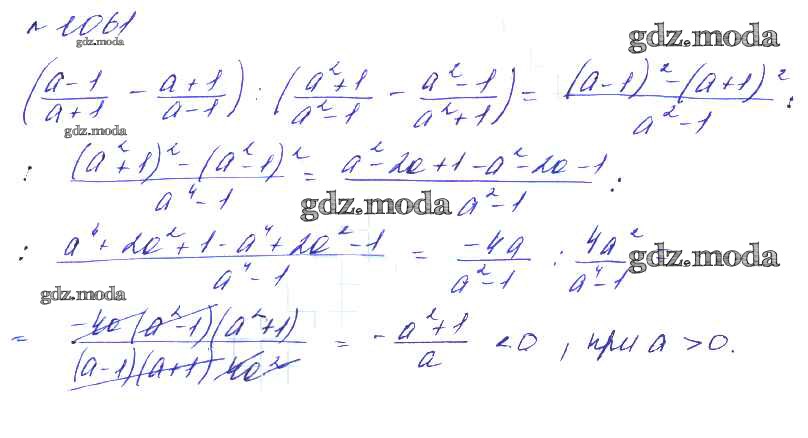 № 1061
gdz.moda
gdz.moda
((a-1)/(a+1) - (a+1)/(a-1)) : ((a²+1)/(a²-1) - (a²-1)/(a²+1)) = ((a-1)² - (a+1)²)/(a²-1) :
gdz.moda
: ((a²+1)² - (a²-1)²)/(a⁴-1) = (a²-2a+1-a²-2a-1)/(a²-1) :
gdz.moda
: (a⁴+2a²+1-a⁴+2a²-1)/(a⁴-1) = (-4a)/(a²-1) : (4a²)/(a⁴-1) =
gdz.moda
gdz.moda
= (-4a(a²-1)(a²+1))/((a-1)(a+1)4a²) = -(a²+1)/a < 0, при a > 0.